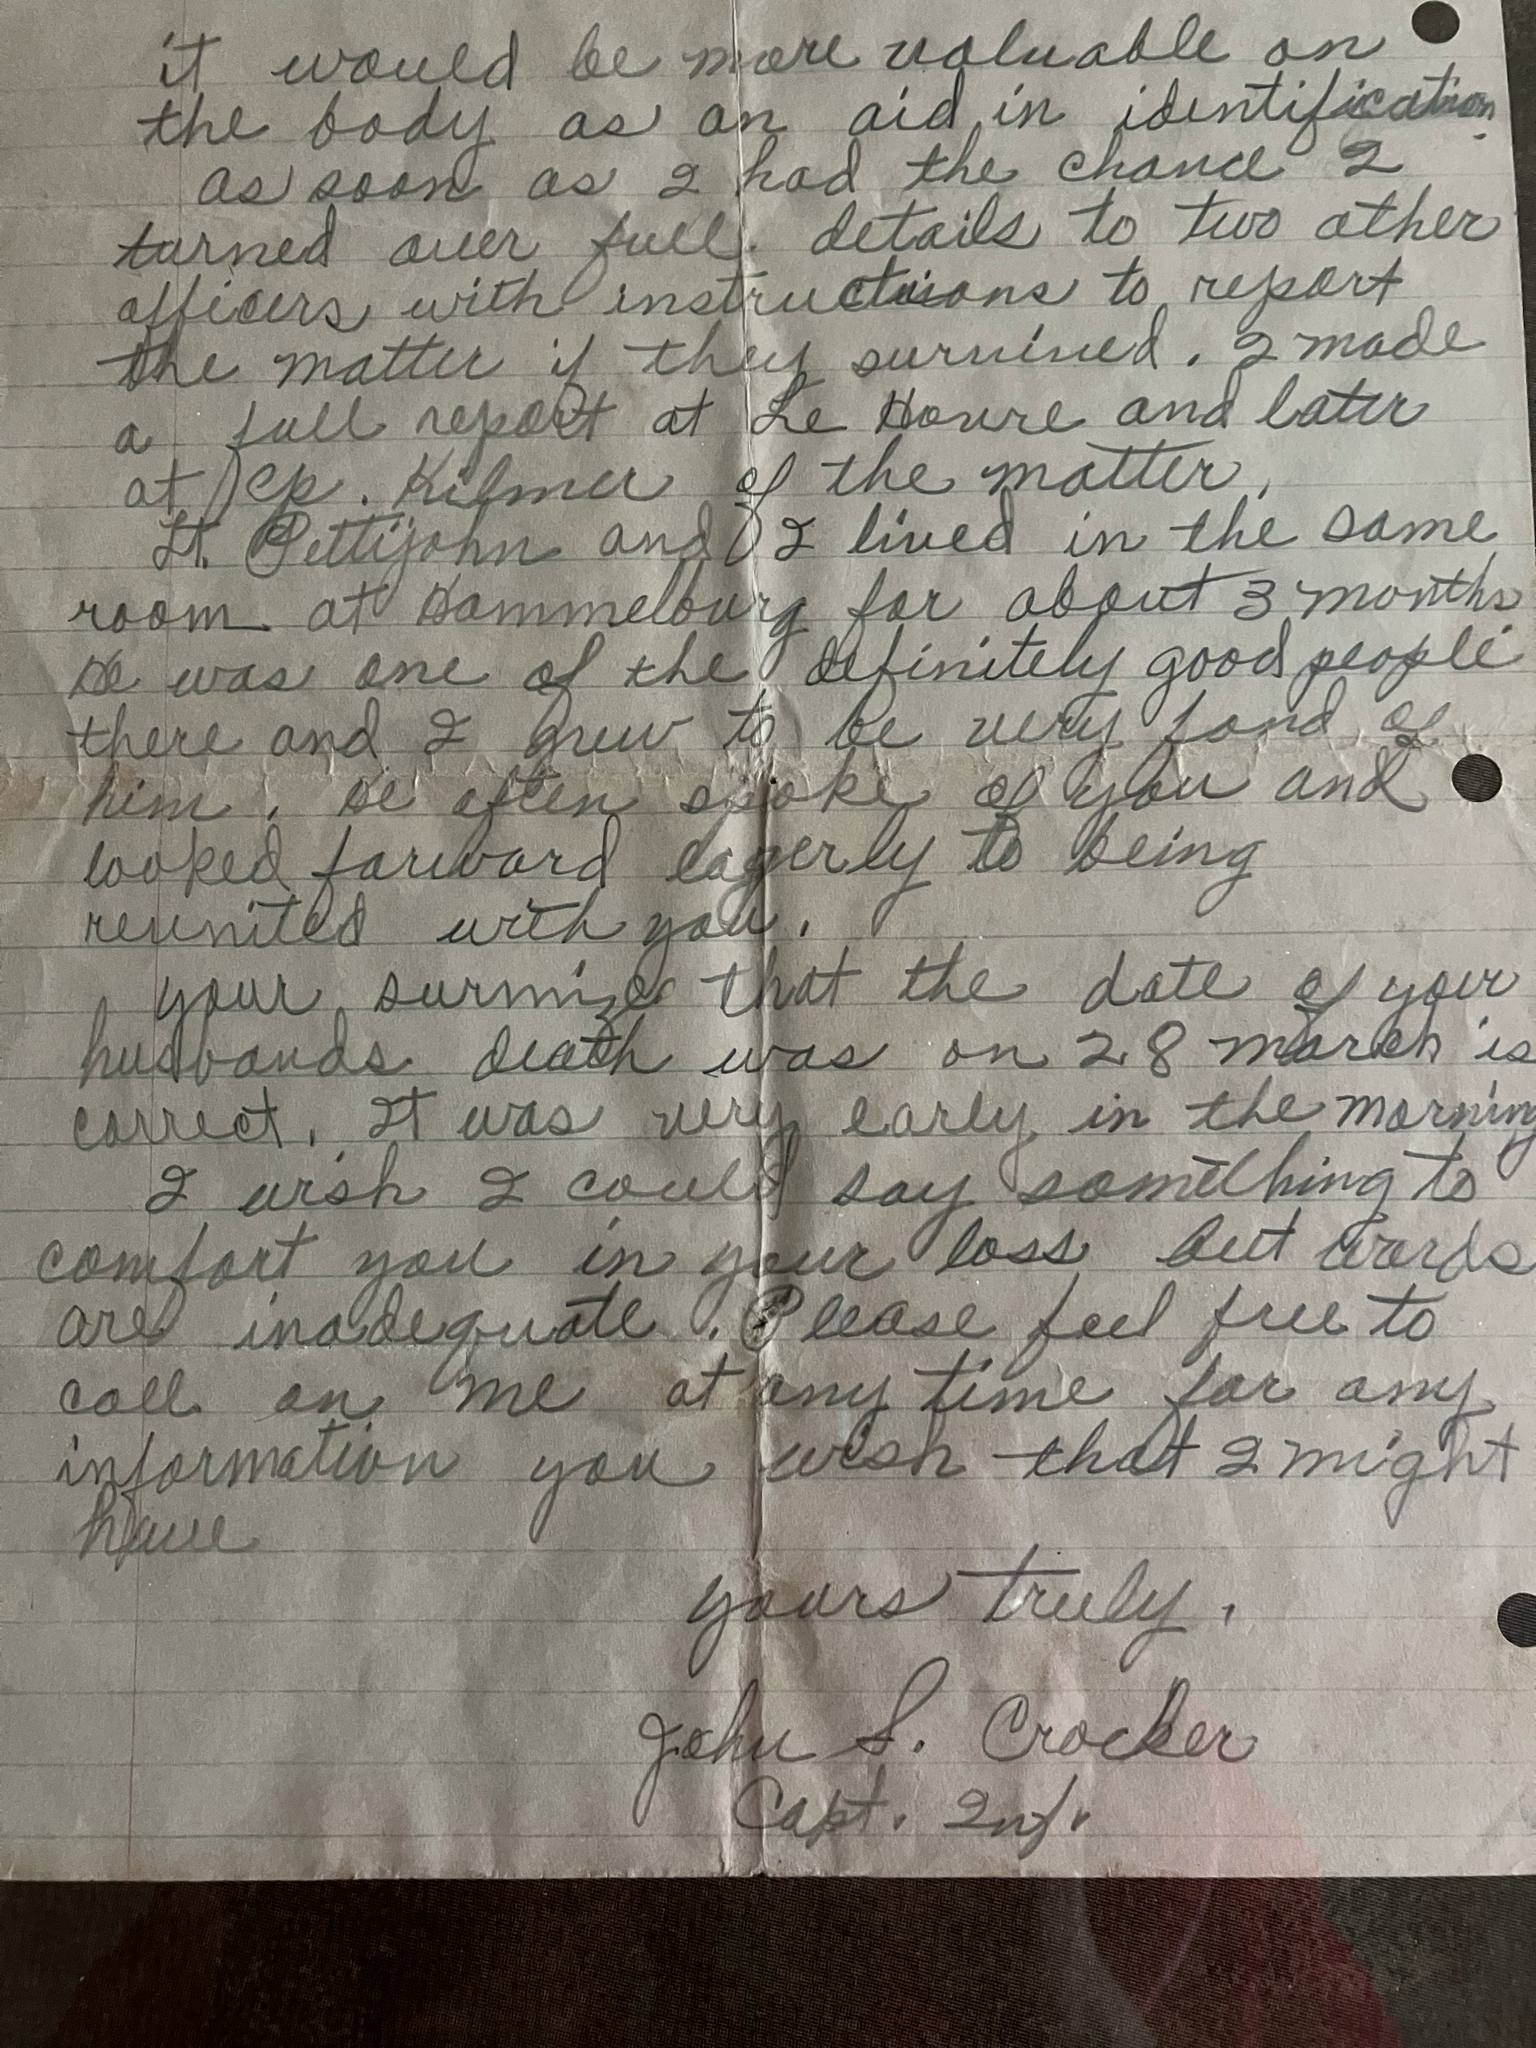 it would be more valuable on
the body as an aid in identification.
as soon as I had the chance I
turned over full details to two other
officers with instructions to report
the matter if they survived. I made
a full report at Le Havre and later
at Cp. Kilmer of the matter.
Lt. Pettijohn and I lived in the same
room at Hammelburg for about 3 months
He was one of the definitely good people
there and I grew to be very fond of
him. He often spoke of you and
looked forward eagerly to being
reunited with you.
your surmize that the date of your
husbands death was on 28 march is
correct. It was very early in the morning
I wish I could say something to
comfort you in your loss but words
are inadequate. Please feel free to
call on me at any time for any
information you wish that I might
have
yours truly,
John S. Crocker
Capt. Inf.